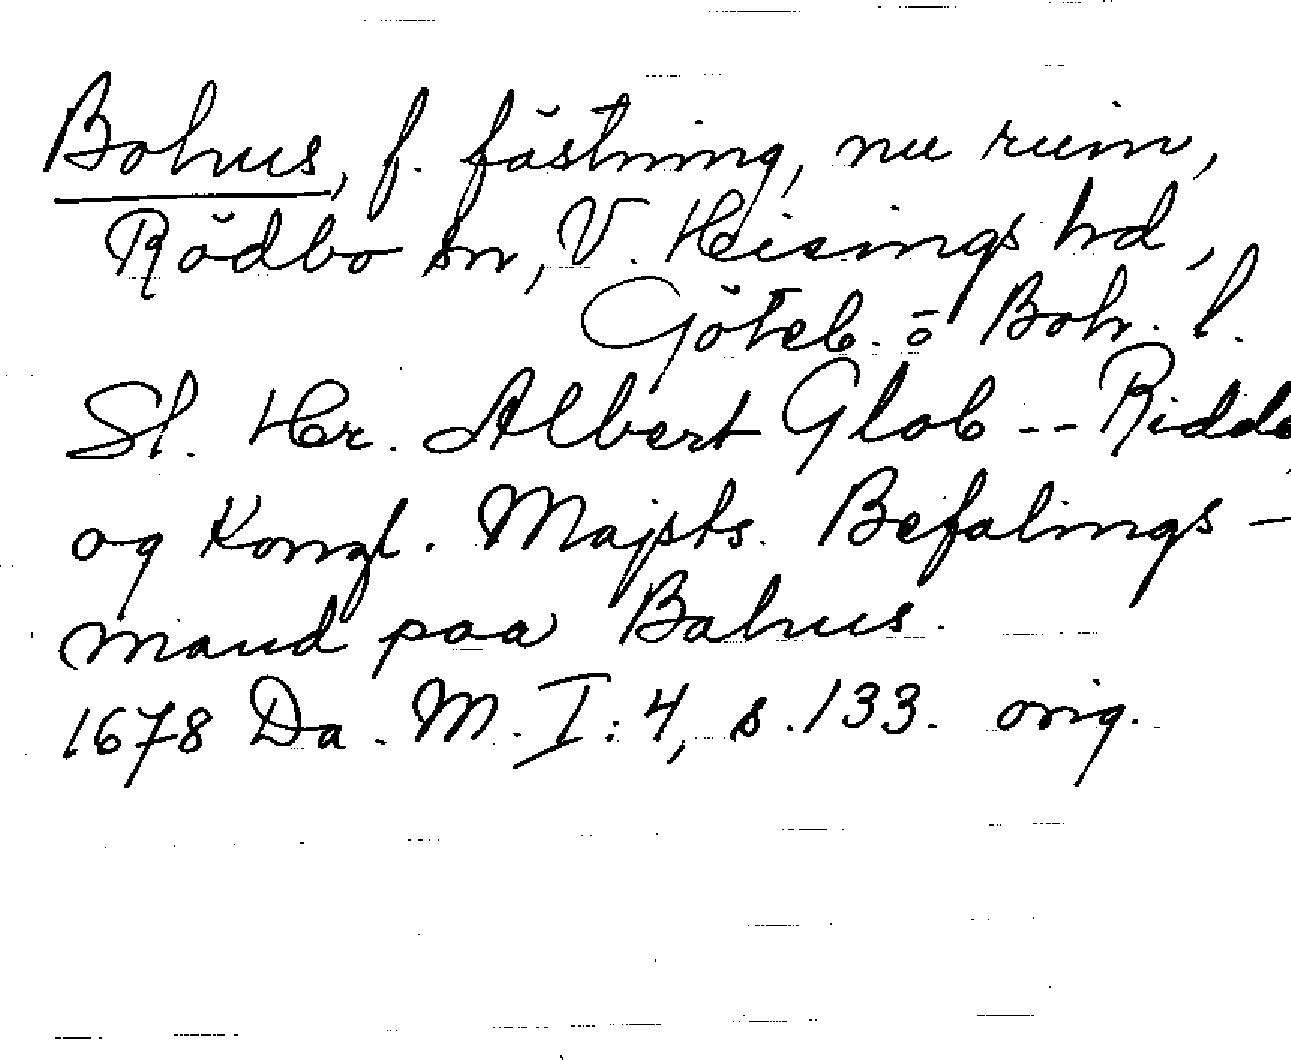 Bohus, f. fästning, nu ruin,
Rödbo sn, V. Hisings hd,
Göteb. o Boh. l.
Sl. Her. Albert Glob -- Ridde
og Kongl. Majsts. Befalings-
mand paa Bahus.
1678 Da. M. I: 4, s. 133. orig.